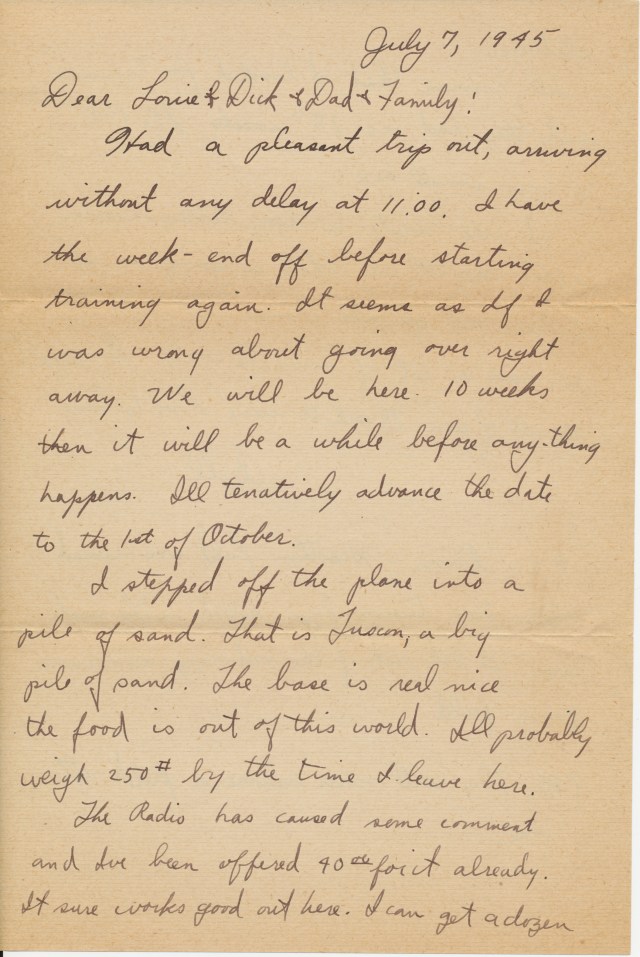 July 7, 1945
Dear Louie & Dick & Dad & Family!
Had a pleasant trip out, arriving
without any delay at 11:00. I have
the week-end off before starting
training again. It seems as if I
was wrong about going over right
away. We will be here 10 weeks
then it will be a while before any-thing
happens. Ill tenatively advance the date
to the 1st of October.
I stepped off the plane into a
pile of sand. That is Tuscon, a big
pile of sand. The base is real nice
the food is out of this world. Ill probably
weigh 250# by the time I leave here.
The Radio has caused some comment
and Ive been offered 40 00 for it already.
It sure works good out here. I can get a dozen